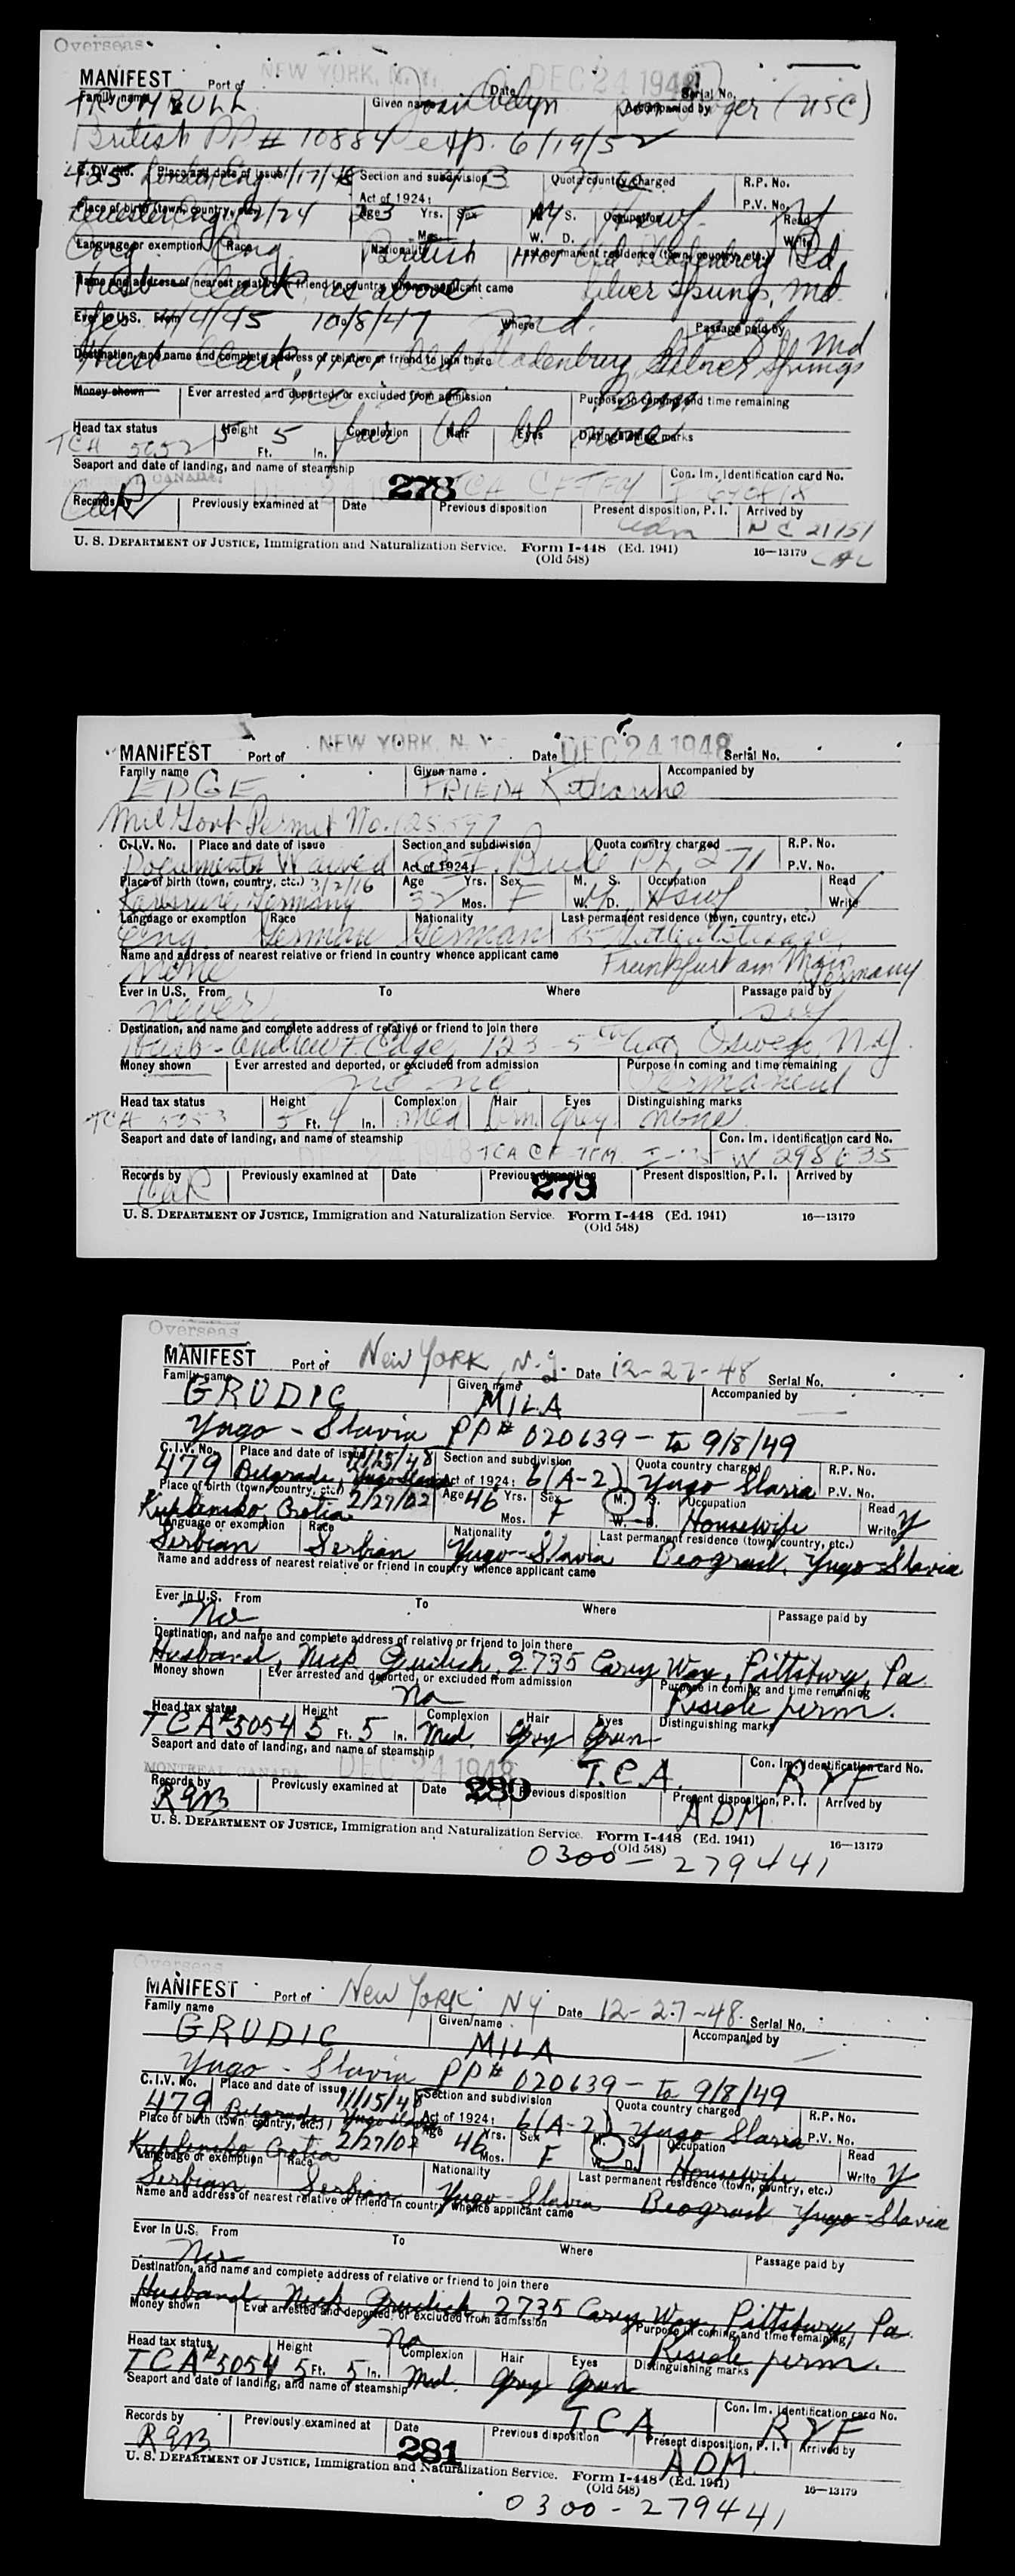 Overseas
MANIFEST Port of NEW YORK, N. Y. Date DEC 24 1948 Serial No.
Family name TRUMBULL Given name Joan Evelyn Accompanied by son Roger (USC)
British PP # 10884 exp. 6/19/52
C.I.V. No. 425 Place and date of issue London Eng /17/48 Section and subdivision Act of 1924: Quota country charged R.P. No.
P.V. No.
Place of birth (town, country, etc.) Leicester Eng /2/24 Age Yrs. Mos. Sex F M. S. W. D. M Occupation Hswf Read Write y
Language or exemption Eng Race Eng. Nationality British Last permanent residence (town, country, etc.) Old Bladensburg Rd
Silver Springs, Md.
Name and address of nearest relative or friend in country whence applicant came Husb Clark, as above
Ever in U.S. From Yes 4/45 To 10/8/47 Where Md. Passage paid by
Destination, and name and complete address of relative or friend to join there Husb Clark, Old Bladensburg, Silver Springs Md
Money shown Ever arrested and deported, or excluded from admission no no Purpose in coming and time remaining Perm
Head tax status TCA 5052 Height 5 Ft. 5 In. Complexion fair Hair Eyes Distinguishing marks none
Seaport and date of landing, and name of steamship CANADA. 278 TCA Con. Im. Identification card No.
Records by CaR Previously examined at Date Previous disposition Present disposition, P. I. adm Arrived by N C 21/51
U. S. DEPARTMENT OF JUSTICE, Immigration and Naturalization Service. Form I-448 (Ed. 1941) 16—13179
(Old 548)
MANIFEST Port of NEW YORK, N. Y. Date DEC 24 1948 Serial No.
Family name EDGE Given name FRIEDA Katharine Accompanied by
Mil Govt Permit No. 125597
C.I.V. No. Place and date of issue Documents Waived Section and subdivision Act of 1924: Bride PL 271 Quota country charged R.P. No.
P.V. No.
Place of birth (town, country, etc.) 3/2/16 Germany Age 32 Yrs. Mos. Sex F M. S. W. D. M Occupation Hswf Read Write y
Language or exemption Eng. Race German Nationality German Last permanent residence (town, country, etc.)
Frankfurt am Main Germany
Name and address of nearest relative or friend in country whence applicant came none
Ever in U.S. From never To Where Passage paid by self
Destination, and name and complete address of relative or friend to join there Husb - Andrew F. Edge, 123 - 5th Ave, Oswego N.Y.
Money shown Ever arrested and deported, or excluded from admission no no Purpose in coming and time remaining Permanent
Head tax status TCA 5053 Height 5 Ft. 4 In. Complexion Med Hair brn Eyes grey Distinguishing marks none
Seaport and date of landing, and name of steamship 1948 TCA CF-TCM Con. Im. Identification card No. W 298635
Records by CaR Previously examined at Date Previous disposition 279 Present disposition, P. I. Arrived by
U. S. DEPARTMENT OF JUSTICE, Immigration and Naturalization Service. Form I-448 (Ed. 1941) 16—13179
(Old 548)
Overseas
MANIFEST Port of New York, N.Y. Date 12-27-48 Serial No.
Family name GRUDIC Given name MILA Accompanied by
Yugo-Slavia PP# 020639 - to 9/8/49
C.I.V. No. 479 Place and date of issue 11/15/48 Belgrade, Yugoslavia Section and subdivision Act of 1924: 6(A-2) Quota country charged Yugo Slavia R.P. No.
P.V. No.
Place of birth (town, country, etc.) Kuplensko, Crotia 2/27/02 Age 46 Yrs. Mos. Sex F M. S. W. D. Occupation Housewife Read Write y
Language or exemption Serbian Race Serbian Nationality Yugo-Slavia Last permanent residence (town, country, etc.) Beograd, Yugo-Slavia
Name and address of nearest relative or friend in country whence applicant came
Ever in U.S. From No To Where Passage paid by
Destination, and name and complete address of relative or friend to join there Husband, Nick Grudich, 2735 Carey Way, Pittsburg, Pa.
Money shown Ever arrested and deported, or excluded from admission No Purpose in coming and time remaining Reside perm.
Head tax status TCA#5054 Height 5 Ft. 5 In. Complexion Med Hair Gray Eyes Green Distinguishing marks
Seaport and date of landing, and name of steamship MONTREAL CANADA DEC 24 1948 T.C.A. Con. Im. Identification card No. RYF
Records by RGB Previously examined at Date 280 Previous disposition Present disposition, P. I. ADM Arrived by
U. S. DEPARTMENT OF JUSTICE, Immigration and Naturalization Service. Form I-448 (Ed. 1941) 16—13179
(Old 548)
0300 - 279441
Overseas
MANIFEST Port of New York, NY Date 12-27-48 Serial No.
Family name GRUDIC Given name MILA Accompanied by
Yugo-Slavia PP# 020639 - to 9/8/49
C.I.V. No. 479 Place and date of issue 11/15/48 Belgrade, Yugoslavia Section and subdivision Act of 1924: 6(A-2) Quota country charged Yugo Slavia R.P. No.
P.V. No.
Place of birth (town, country, etc.) Kuplensko Crotia 2/27/02 Age 46 Yrs. Mos. Sex F M. S. W. D. Occupation Housewife Read Write y
Language or exemption Serbian Race Serbian Nationality Yugo-Slavia Last permanent residence (town, country, etc.) Beograd Yugo-Slavia
Name and address of nearest relative or friend in country whence applicant came
Ever in U.S. From No To Where Passage paid by
Destination, and name and complete address of relative or friend to join there Husband, Nick Grudich 2735 Carey Way, Pittsburg, Pa.
Money shown Ever arrested and deported, or excluded from admission No Purpose in coming and time remaining Reside perm.
Head tax status TCA#5054 Height 5 Ft. 5 In. Complexion Med. Hair Gray Eyes Green Distinguishing marks
Seaport and date of landing, and name of steamship T.C.A. Con. Im. Identification card No. RYF
Records by RGB Previously examined at Date 281 Previous disposition Present disposition, P. I. ADM. Arrived by
U. S. DEPARTMENT OF JUSTICE, Immigration and Naturalization Service. Form I-448 (Ed. 1941) 16—13179
(Old 548)
0300 - 279441